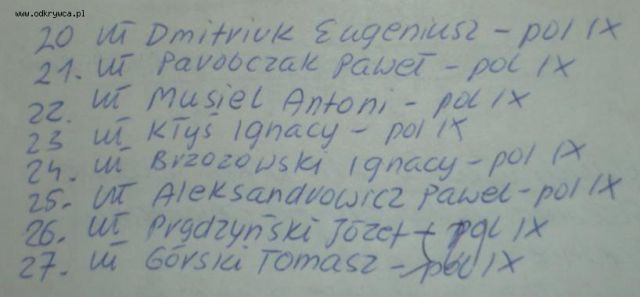 www.odkrywca.pl
20 uł Dmitriuk Eugeniusz - pol IX
21. uł Parobczak Paweł - pol IX
22. uł Musiel Antoni - pol IX
23 uł Kłyś Ignacy - pol IX
24. uł Brzozowski Ignacy - pol IX
25. uł Aleksandrowicz Paweł - pol IX
26. uł Prądzyński Józef - pol IX
27. uł Górski Tomasz - pol IX